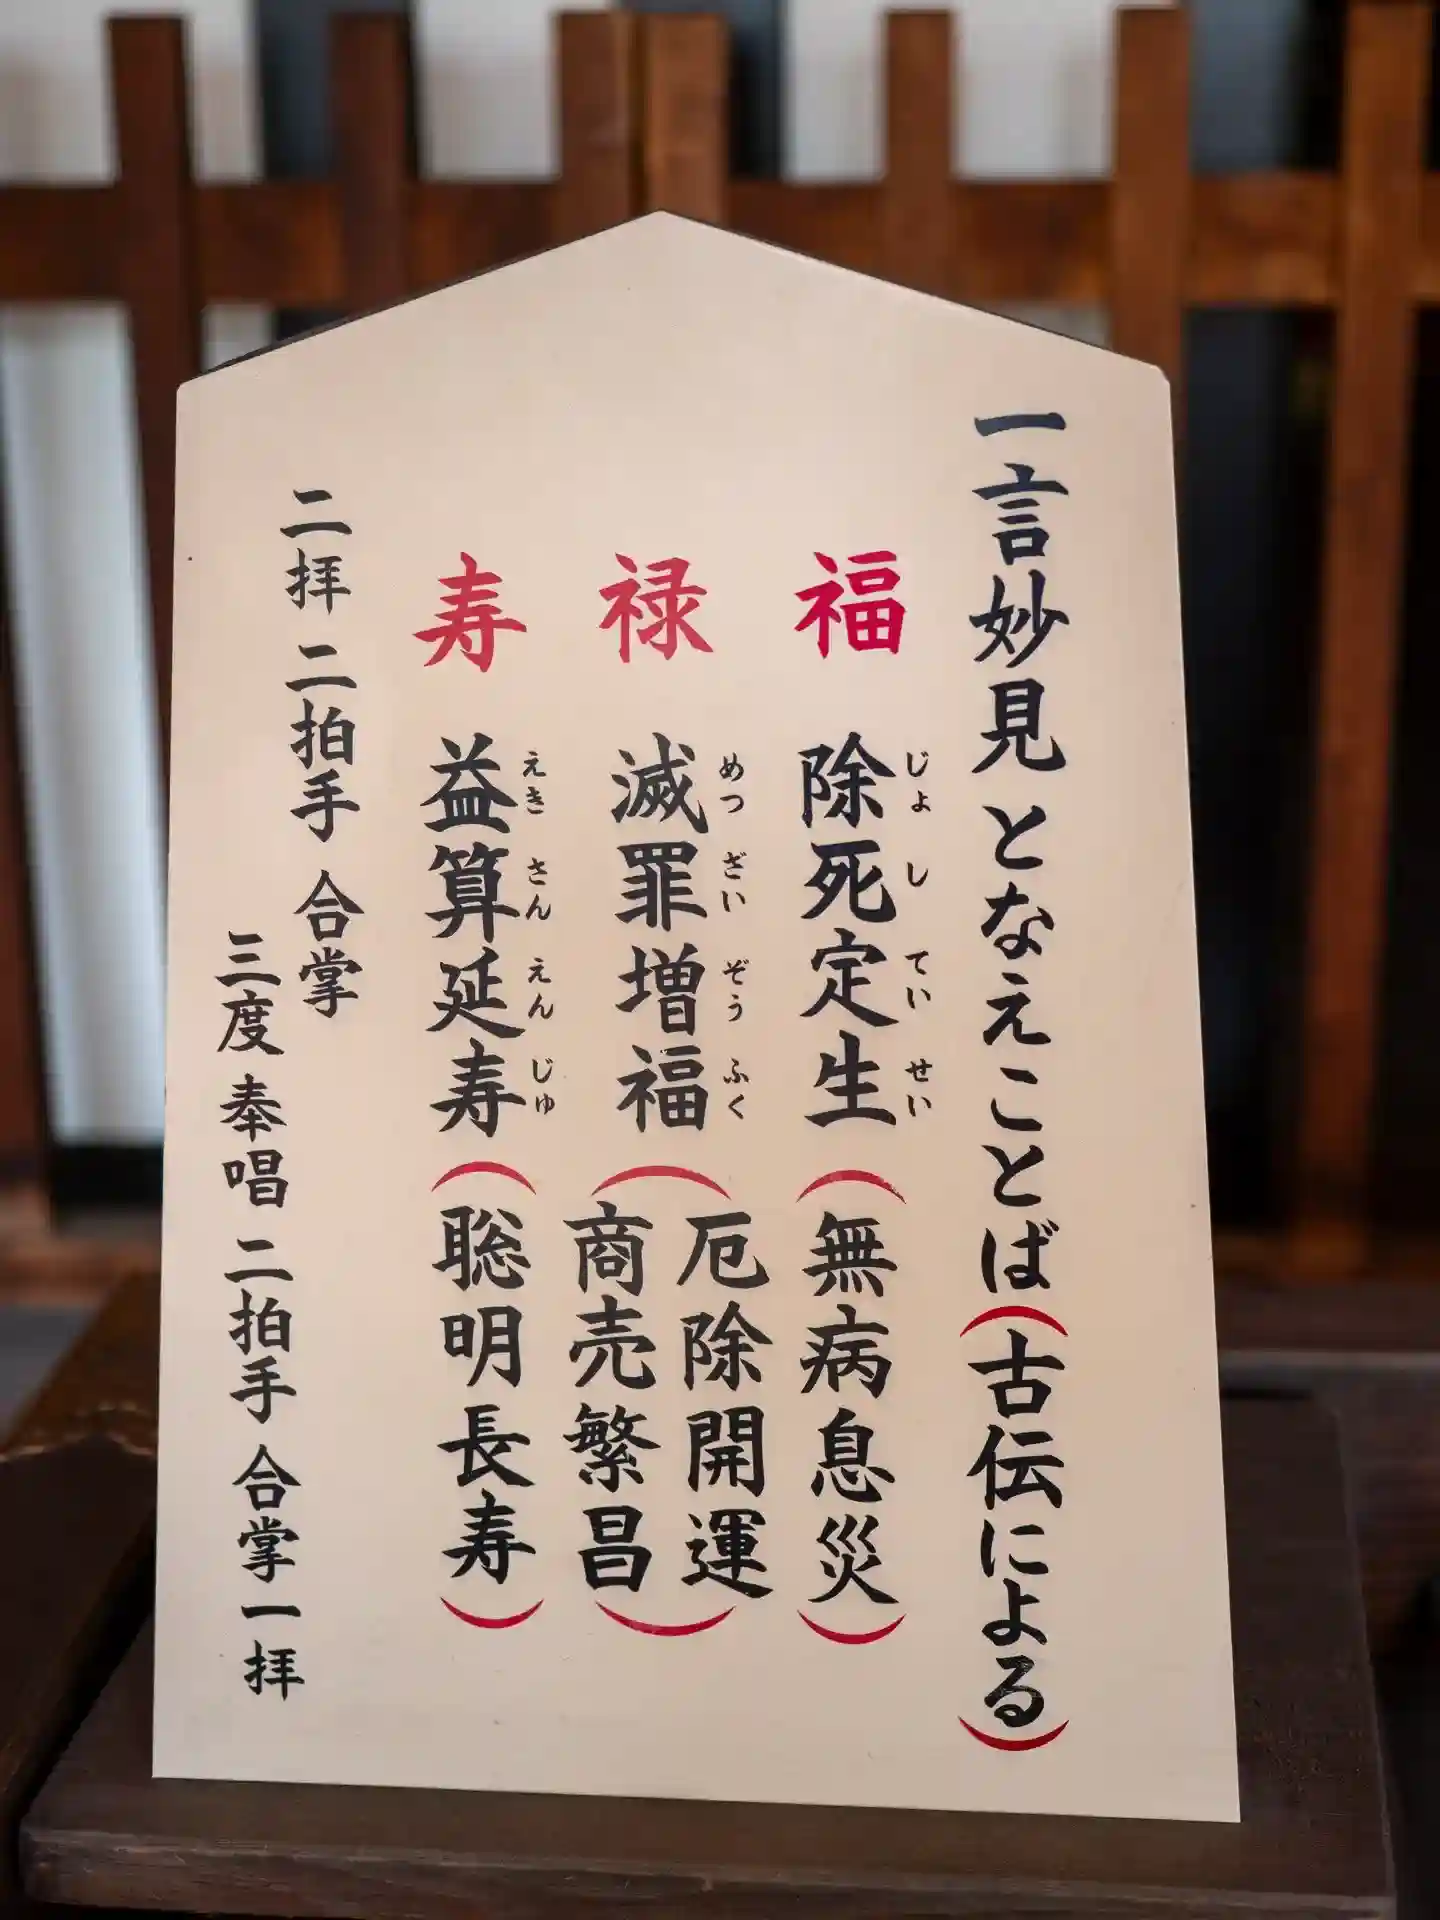 一言妙見 となえことば(古伝による)
福 除死定生(無病息災)
じょ し てい せい
禄 滅罪増福(厄除開運
商売繁昌)
めつ ざい ぞう ふく
寿 益算延寿(聡明長寿)
えき さん えん じゅ
二拝 二拍手 合掌
三度 奉唱 二拍手 合掌 一拝